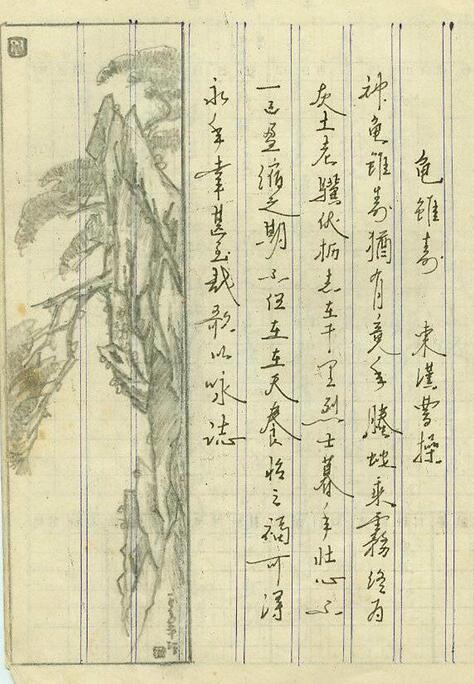 龟雖寿 東漢曹操
神龟雖寿猶有竟年騰蛇乘霧終为
灰土老驥伏枥志在千里烈士暮年壮心不
已盈缩之期不但在在天養怡之福可得
永年幸甚至哉歌以咏誌